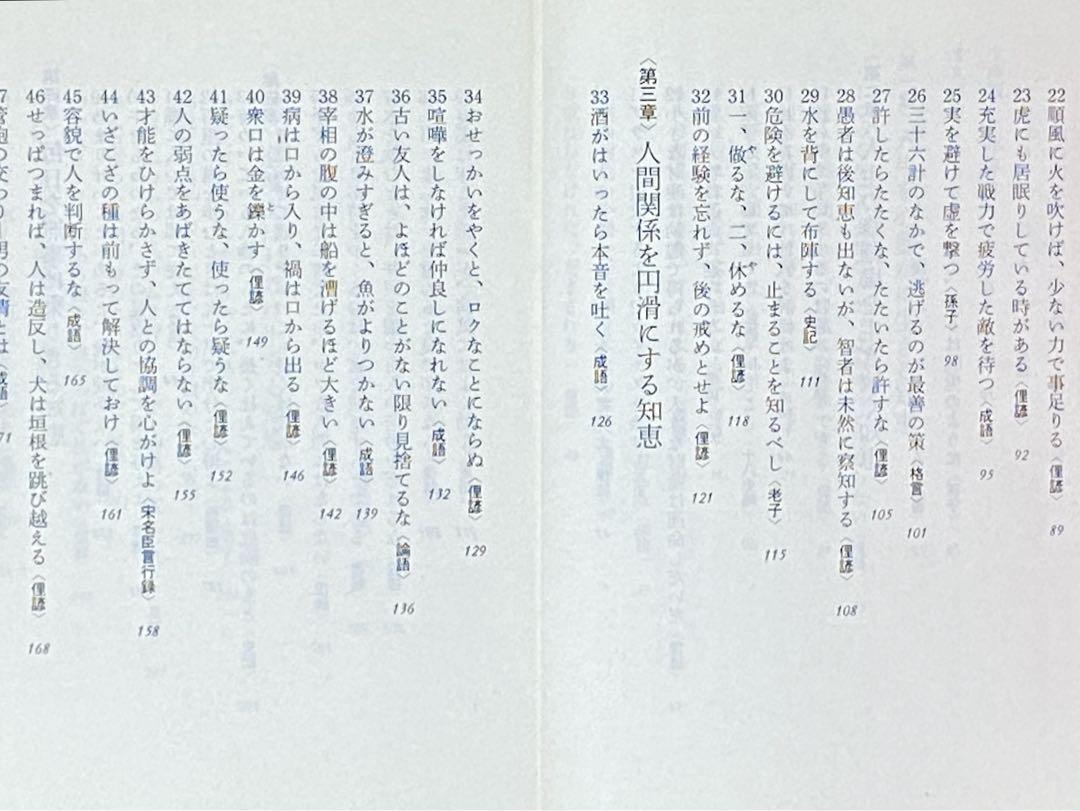 22 順風に火を吹けば、少ない力で事足りる〈俚諺〉 89
23 虎にも居眠りしている時がある〈俚諺〉 92
24 充実した戦力で疲労した敵を待つ〈成語〉 95
25 実を避けて虚を撃つ〈孫子〉 98
26 三十六計のなかで、逃げるのが最善の策〈格言〉 101
27 許したらたたくな、たたいたら許すな〈俚諺〉 105
28 愚者は後知恵も出ないが、智者は未然に察知する〈俚諺〉 108
29 水を背にして布陣する〈史記〉 111
30 危険を避けるには、止まることを知るべし〈老子〉 115
31 一、做るな、二、休めるな〈俚諺〉 118
や や
32 前の経験を忘れず、後の戒めとせよ〈俚諺〉 121
〈第三章〉人間関係を円滑にする知恵
33 酒がはいったら本音を吐く〈成語〉 126
34 おせっかいをやくと、ロクなことにならぬ〈俚諺〉 129
35 喧嘩をしなければ仲良しになれない〈成語〉 132
36 古い友人は、よほどのことがない限り見捨てるな〈論語〉 136
37 水が澄みすぎると、魚がよりつかない〈成語〉 139
38 宰相の腹の中は船を漕げるほど大きい〈俚諺〉 142
39 病は口から入り、禍は口から出る〈俚諺〉 146
40 衆口は金を鑠かす〈俚諺〉 149
と
41 疑ったら使うな、使ったら疑うな〈俚諺〉 152
42 人の弱点をあばきたててはならない〈俚諺〉 155
43 才能をひけらかさず、人との協調を心がけよ〈宋名臣言行録〉 158
44 いざこざの種は前もって解決しておけ〈俚諺〉 161
45 容貌で人を判断するな〈成語〉 165
46 せっぱつまれば、人は造反し、犬は垣根を跳び越える〈俚諺〉 168
7 管鮑の交わり